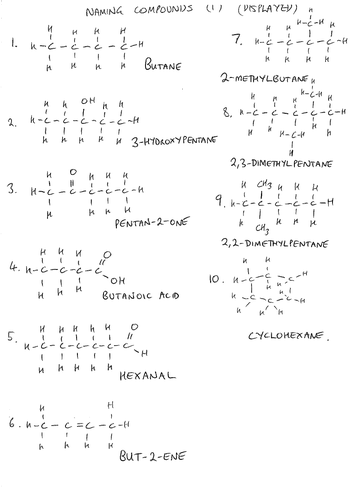 NAMING COMPOUNDS (1) (DISPLAYED)
1.
BUTANE
2.
OH
3-HYDROXYPENTANE
3.
O
PENTAN-2-ONE
4.
O
OH
BUTANOIC ACID
5.
O
H
HEXANAL
6.
BUT-2-ENE
7.
2-METHYLBUTANE
8.
2,3-DIMETHYLPENTANE
9.
CH3
CH3
2,2-DIMETHYLPENTANE
10.
CYCLOHEXANE.